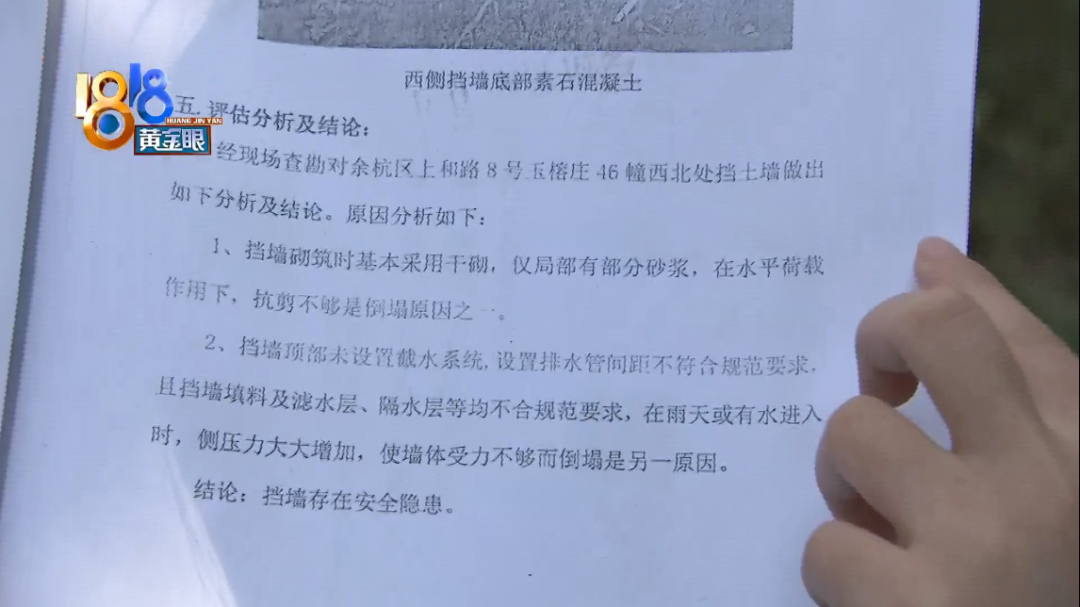 西侧挡墙底部素石混凝土
1818
HUANG JIN YAN
黄金眼
五.评估分析及结论：
经现场查勘对余杭区上和路8号玉榕庄46幢西北处挡土墙做出
如下分析及结论。原因分析如下：
1、挡墙砌筑时基本采用干砌，仅局部有部分砂浆，在水平荷载
作用下，抗剪不够是倒塌原因之一。
2、挡墙顶部未设置截水系统,设置排水管间距不符合规范要求，
且挡墙填料及滤水层、隔水层等均不合规范要求，在雨天或有水进入
时，侧压力大大增加，使墙体受力不够而倒塌是另一原因。
结论：挡墙存在安全隐患。